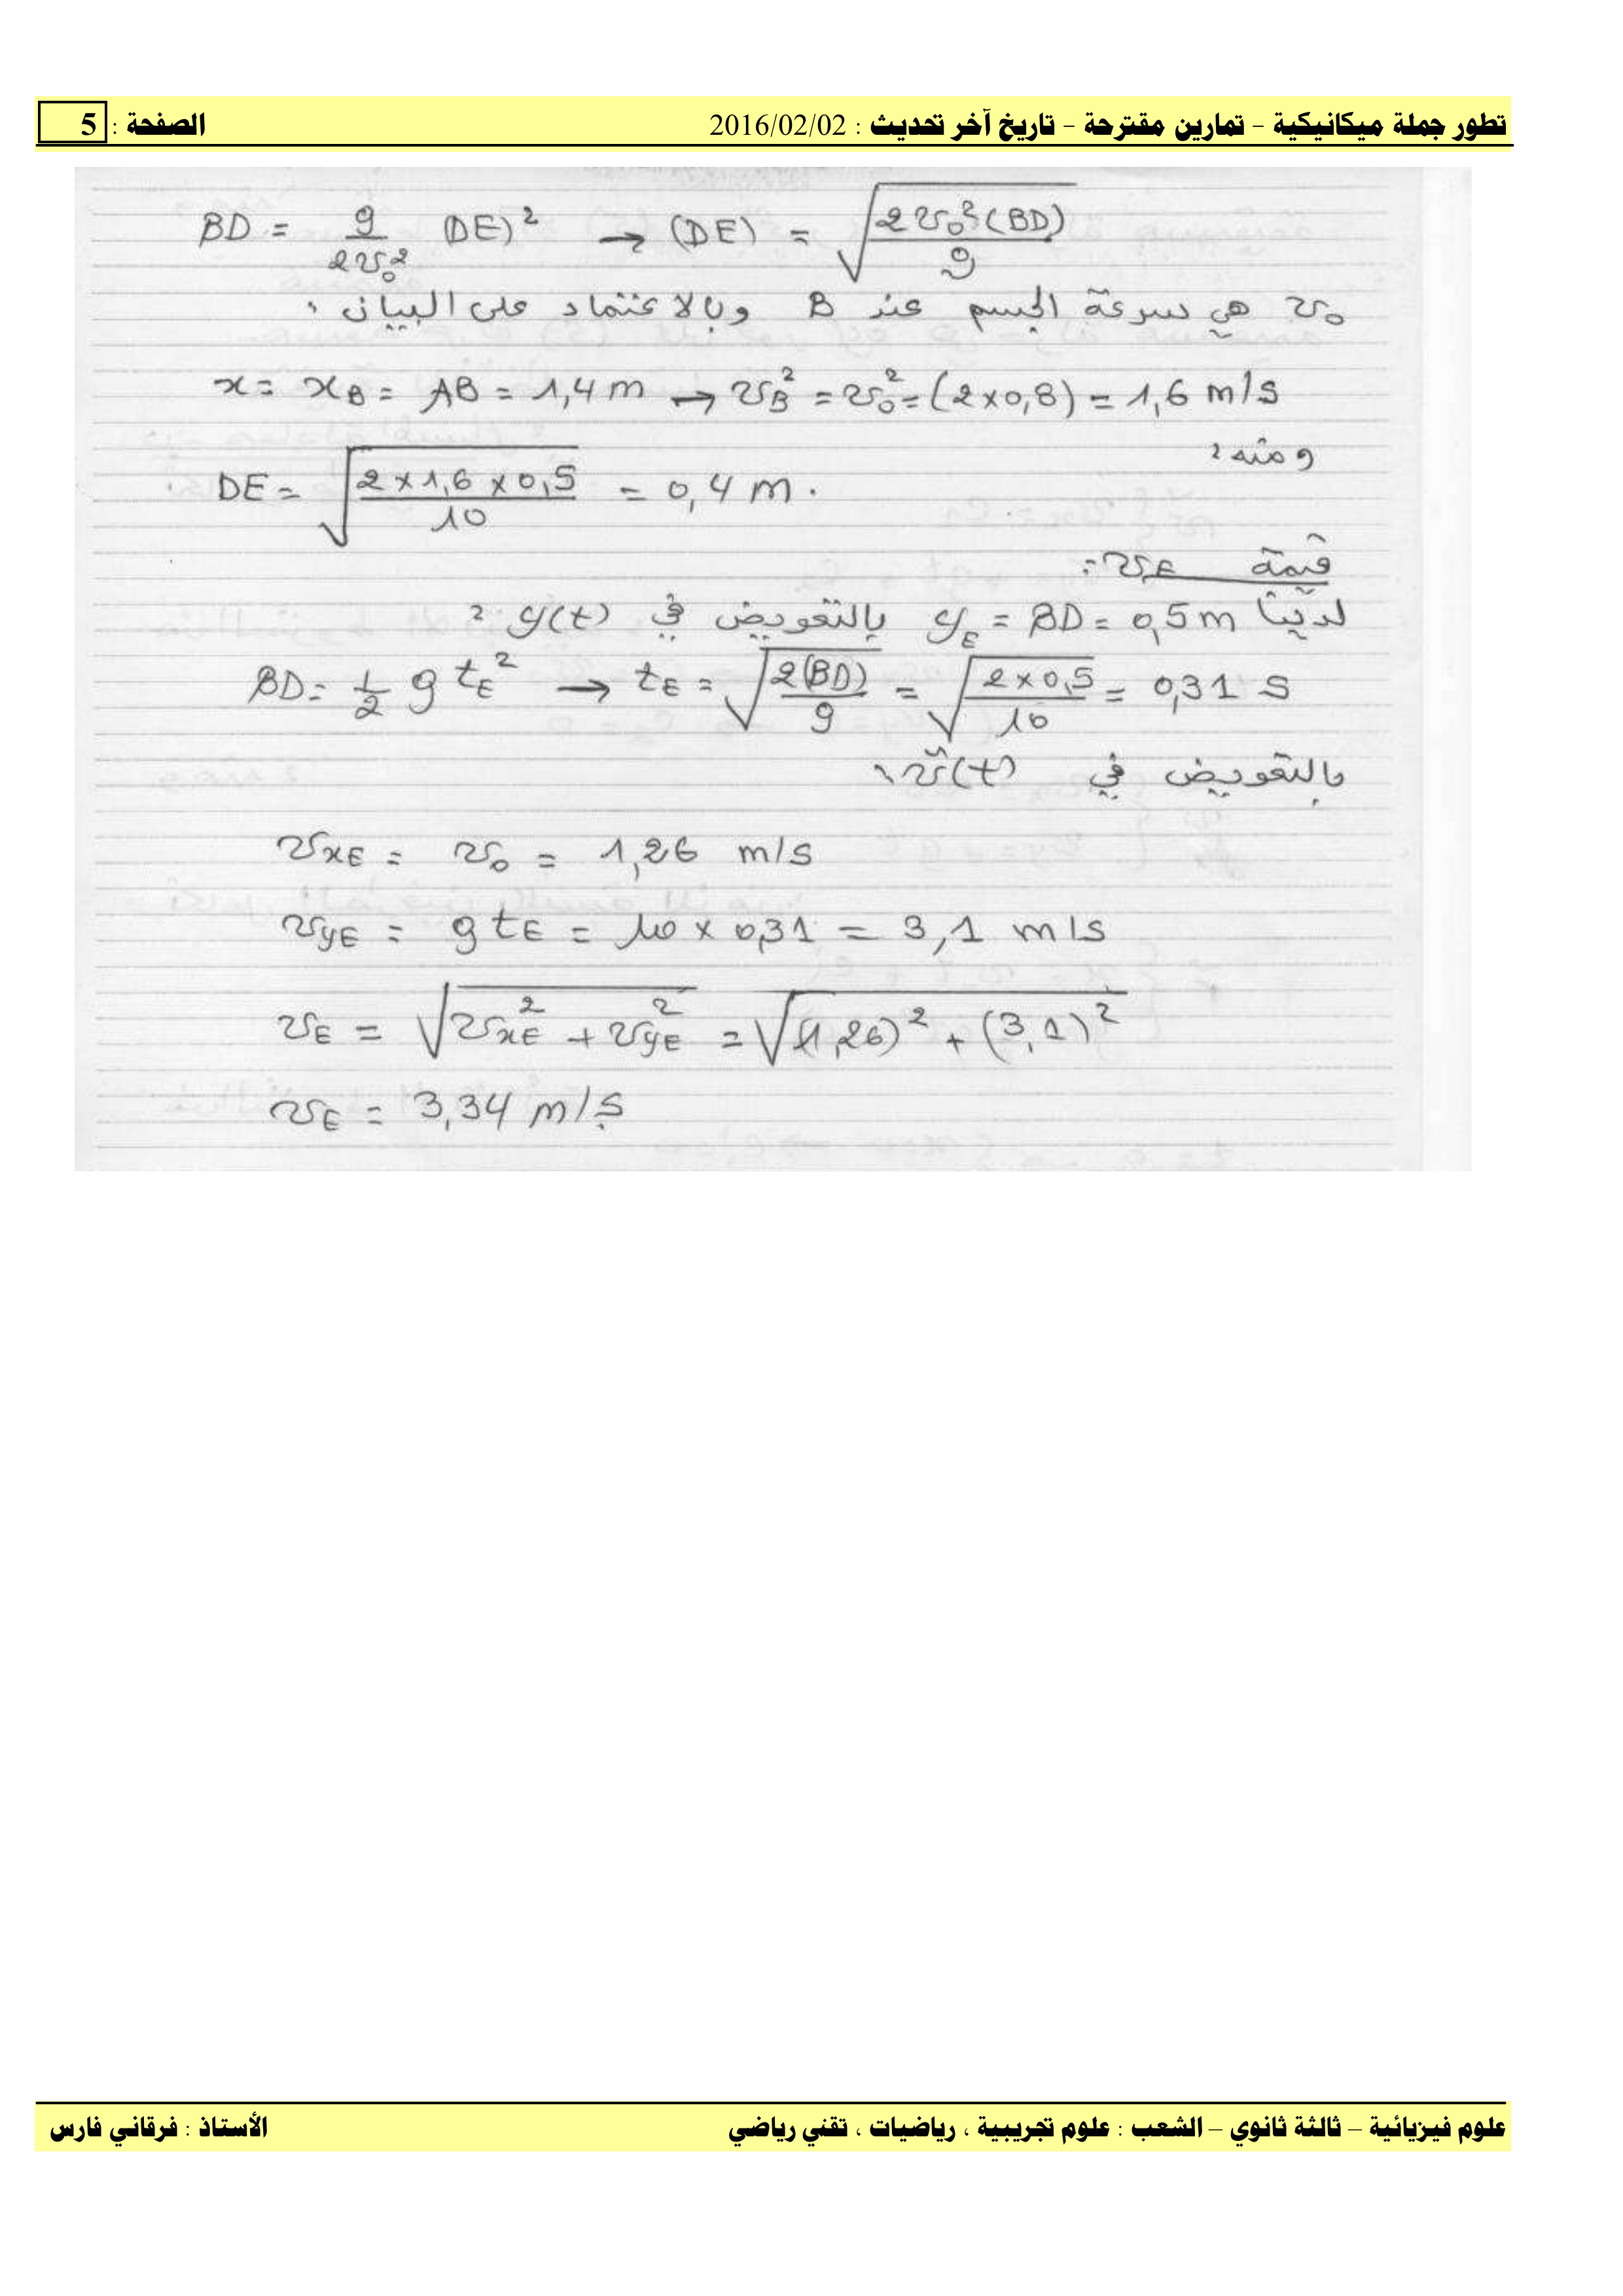 تطور جملة ميكانيكية - تمارين مقترحة - تاريخ آخر تحديث : 2016/02/02 الصفحة : 5
BD = g/2v₀² (DE)² → (DE) = √(2v₀²(BD)/g)
v₀ هي سرعة الجسم عند B وبالاعتماد على البيان :
x = x_B = AB = 1,4 m → v_B² = v₀² = (2×0,8) = 1,6 m/s
ومنه :
DE = √(2×1,6×0,5/10) = 0,4 m.
قيمة v_E :
لدينا y_E = BD = 0,5 m بالتعويض في y(t) :
BD = 1/2 g t_E² → t_E = √(2(BD)/g) = √(2×0,5/10) = 0,31 s
بالتعويض في v(t) :
v_xE = v₀ = 1,26 m/s
v_yE = g t_E = 10 × 0,31 = 3,1 m/s
v_E = √(v_xE² + v_yE²) = √((1,26)² + (3,1)²)
v_E = 3,34 m/s.
علوم فيزيائية – ثالثة ثانوي – الشعب : علوم تجريبية ، رياضيات ، تقني رياضي الأستاذ : فرقاني فارس